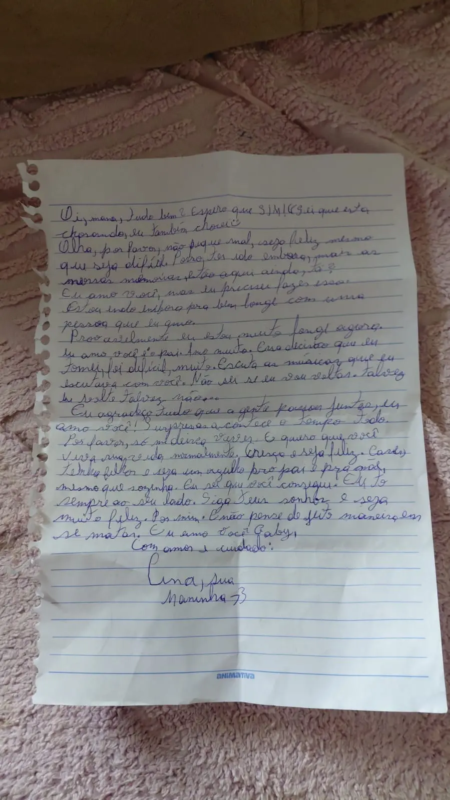 Oi, mana, tudo bem? Espero que sim, sei que está
chorando, eu também chorei
Olha, por favor, não fique mal, seja feliz mesmo
que seja difícil. Posso ter ido embora, mas as
nossas memórias, estão aqui ainda, tá?
Eu amo você, mas eu preciso fazer isso.
Estou indo embora pra bem longe com uma
pessoa que eu amo.
Provavelmente eu estou muito longe agora.
Eu amo você e o pai. Amo muito. Essa decisão que eu
tomei, foi difícil, muito. Escuta as músicas que eu
escutava com você. Não sei se eu vou voltar. Talvez
eu volte. Talvez não...
Eu agradeço tudo que a gente passou juntas, eu
amo você! Imprevisto acontece o tempo todo.
Por favor, só não desista de viver. Eu quero que você
viva sua vida normalmente, cresça e seja feliz. Case,
tenha filhos e seja um orgulho pro pai e pra mãe,
mesmo que sozinha. Eu sei que você consegue! Eu tô
sempre ao seu lado. Siga seus sonhos e seja
muito feliz. Por mim. E não pense de jeito maneira em
se matar. Eu amo você Gaby,
Com amor e cuidado:
sua
Maninha <3